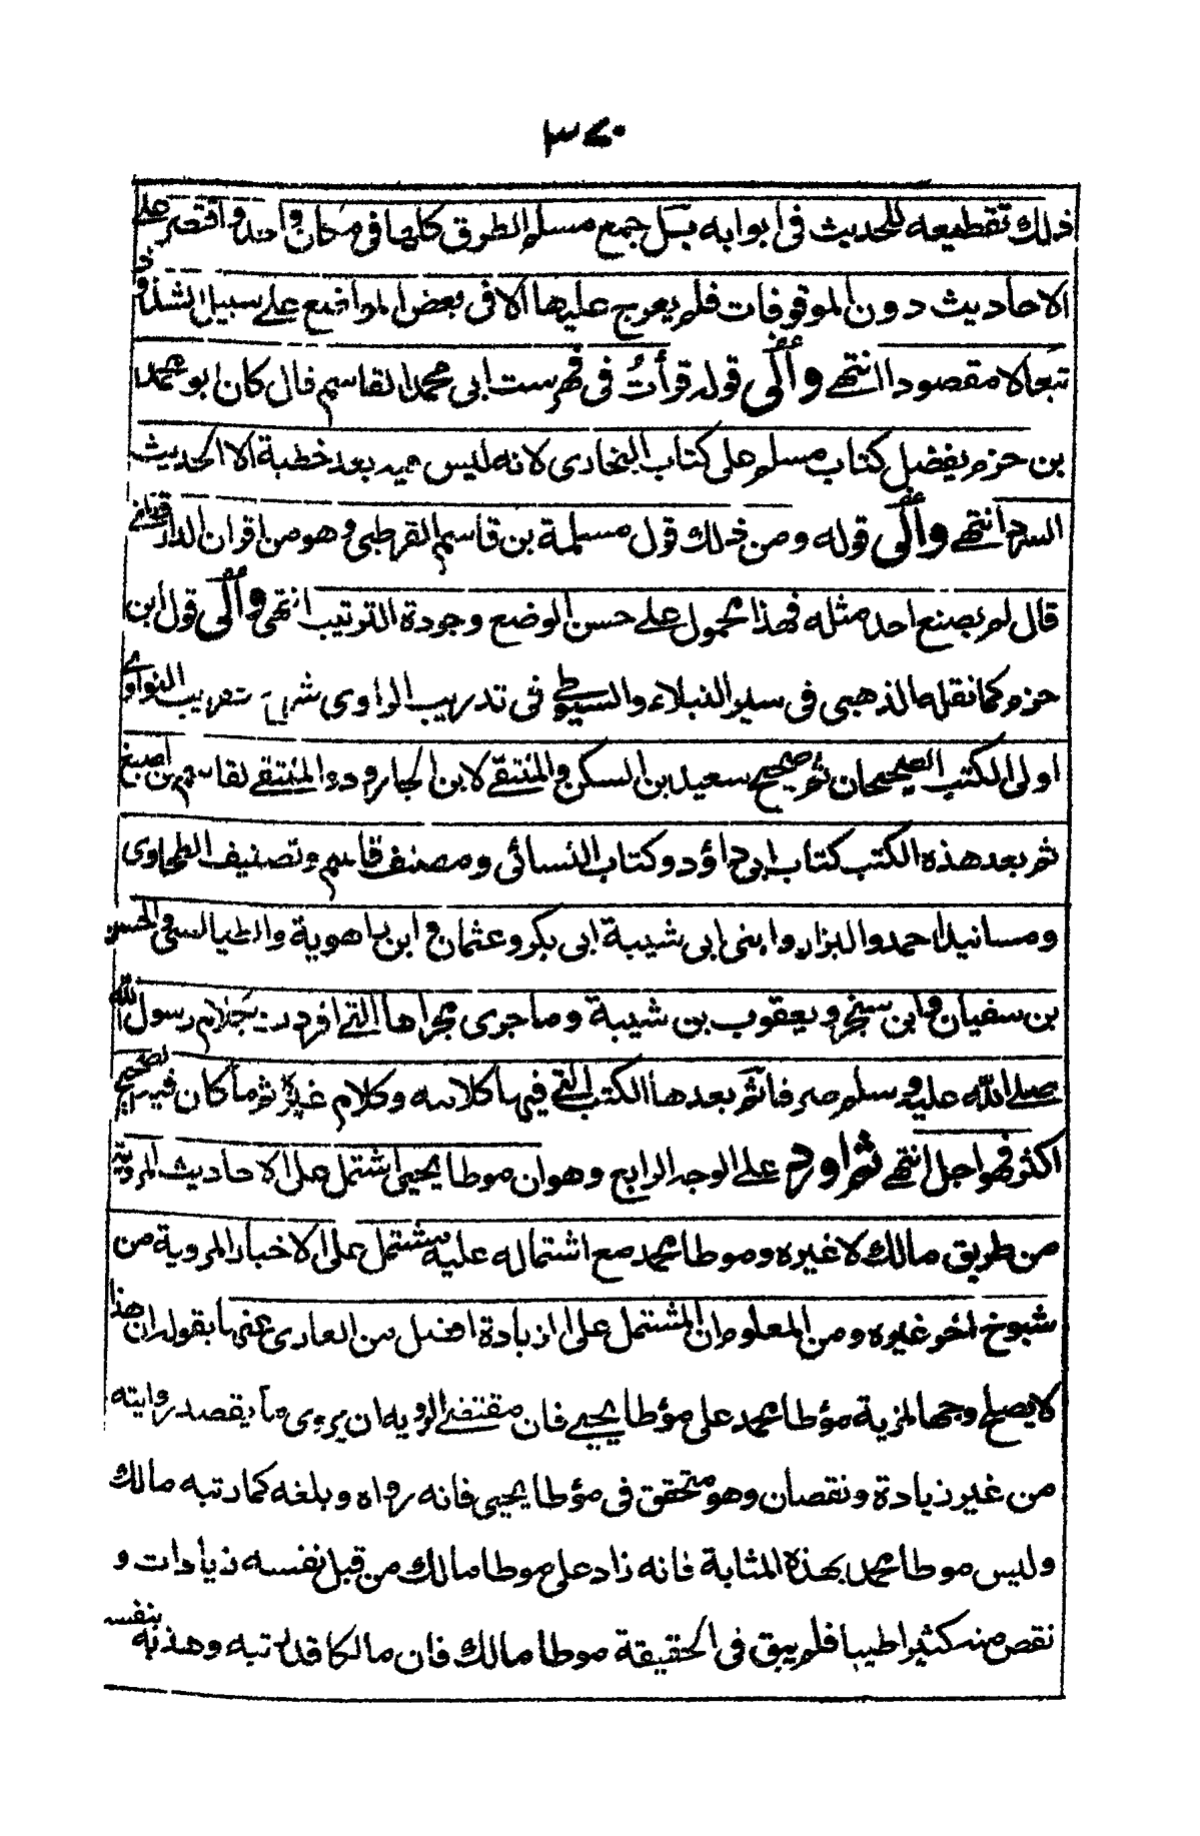 ٣٧٠
ذلك تقطيعه للحديث فى ابوابه بل جمع مسلم الطرق كلها فى مكان واحد واقتصر على
الاحاديث دون الموقوفات فلم يعرج عليها الا فى بعض المواضع على سبيل الشذوذ
تبعا لا مقصودا انتهى والى قوله قرأت فى فهرست ابى محمد القاسم قال كان ابو محمد
بن حزم يفضل كتاب مسلم على كتاب البخارى لانه ليس فيه بعد خطبة الا الحديث
السرد انتهى والى قوله ومن ذلك قول مسلمة بن قاسم القرطبى وهو من اقران الدارقطنى
قال لم يصنع احد مثله فهذا محمول على حسن الوضع وجودة الترتيب انتهى والى قول ابن
حزم كما نقله الذهبى فى سير النبلاء والسيوطى فى تدريب الراوى شرح تقريب النواوى
اولى الكتب الصحيحان ثم صحيح سعيد بن السكن والمنتقى لابن الجارود والمنتقى لقاسم بن اصبغ
ثم بعد هذه الكتب كتاب ابى داؤد وكتاب النسائى ومصنف قاسم وتصنيف الطحاوى
ومسانيد احمد والبزار وابنى ابى شيبة ابى بكر وعثمان وابن راهوية والطيالسى والحسن
بن سفيان وابن سنجر ويعقوب بن شيبة وما جرى مجراها التى افردت بكلام رسول الله
صلى الله عليه وسلم صرفا ثم بعدها الكتب التى فيها كلامه وكلام غيره ثم ما كان فيه الصحيح
اكثر فهو اجل انتهى ثم اورد على الوجه الرابع وهو ان موطا يحيى اشتمل على الاحاديث المروية
من طريق مالك لا غيره وموطا محمد مع اشتماله عليه مشتمل على الاخبار المروية من
شيوخ اخر غيره ومن المعلوم ان المشتمل على الزيادة افضل من العارى عنها بقوله ان هذا
لا يصلح وجها لمزية مؤطا محمد على مؤطا يحيى فان مقتضى الروية ان يروى ما يقصد روايته
من غير زيادة ونقصان وهو متحقق فى مؤطا يحيى فانه رواه وبلغه كما رتبه مالك
وليس موطا محمد بهذه المثابة فانه زاد على موطا مالك من قبل نفسه زيادات و
نقص منه كثيرا طيبا فلم يبق فى الحقيقة موطا مالك فان مالكا قد رتبه وهذبه بنفسه